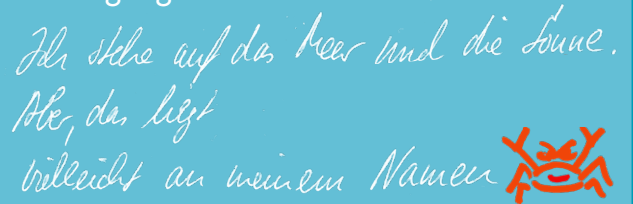 Ich stehe auf das Meer und die Sonne.
Aber, das liegt
vielleicht an meinem Namen